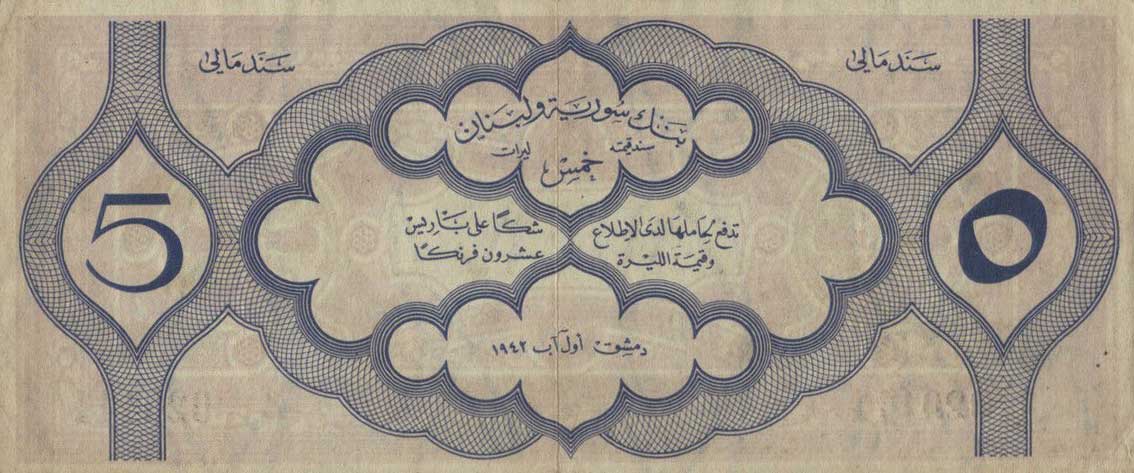 سَنَد مَالي
سَنَد مَالي
بَنك سُورية ولبنان
سند قيمته خمسْ ليرات
تدفع لحاملها لدى الإطلاع شكًا على بَاريس
وقيمة الليرة عشرون فرنكًا
5
٥
دمشق أول آب ١٩٤٢